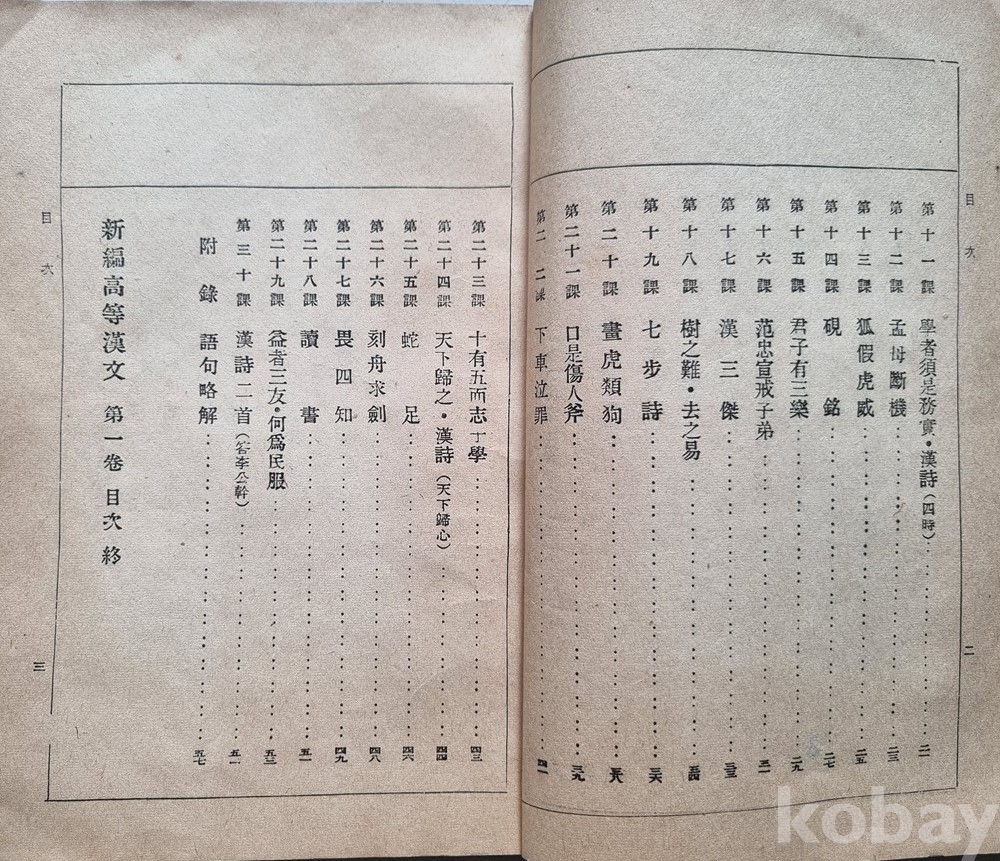 目次 二
第十一課 學者須是務實・漢詩(四時)……二一
第十二課 孟母斷機……二三
第十三課 狐假虎威……二五
第十四課 硯銘……二七
第十五課 君子有三樂……二九
第十六課 范忠宣戒子弟……三一
第十七課 漢三傑……三三
第十八課 樹之難・去之易……三四
第十九課 七步詩……三六
第二十課 畫虎類狗……三八
第二十一課 口是傷人斧……三九
第二 二課 下車泣罪……四一
第二十三課 十有五而志于學……四三
第二十四課 天下歸之・漢詩(天下歸心)……四四
第二十五課 蛇足……四六
第二十六課 刻舟求劍……四八
第二十七課 畏四知……四九
第二十八課 讀書……五一
第二十九課 益者三友・何爲民服……五三
第三十課 漢詩二首(答李公幹)……
附錄 語句略解……五七
新編高等漢文 第一卷 目次 終
目次 三
kobay